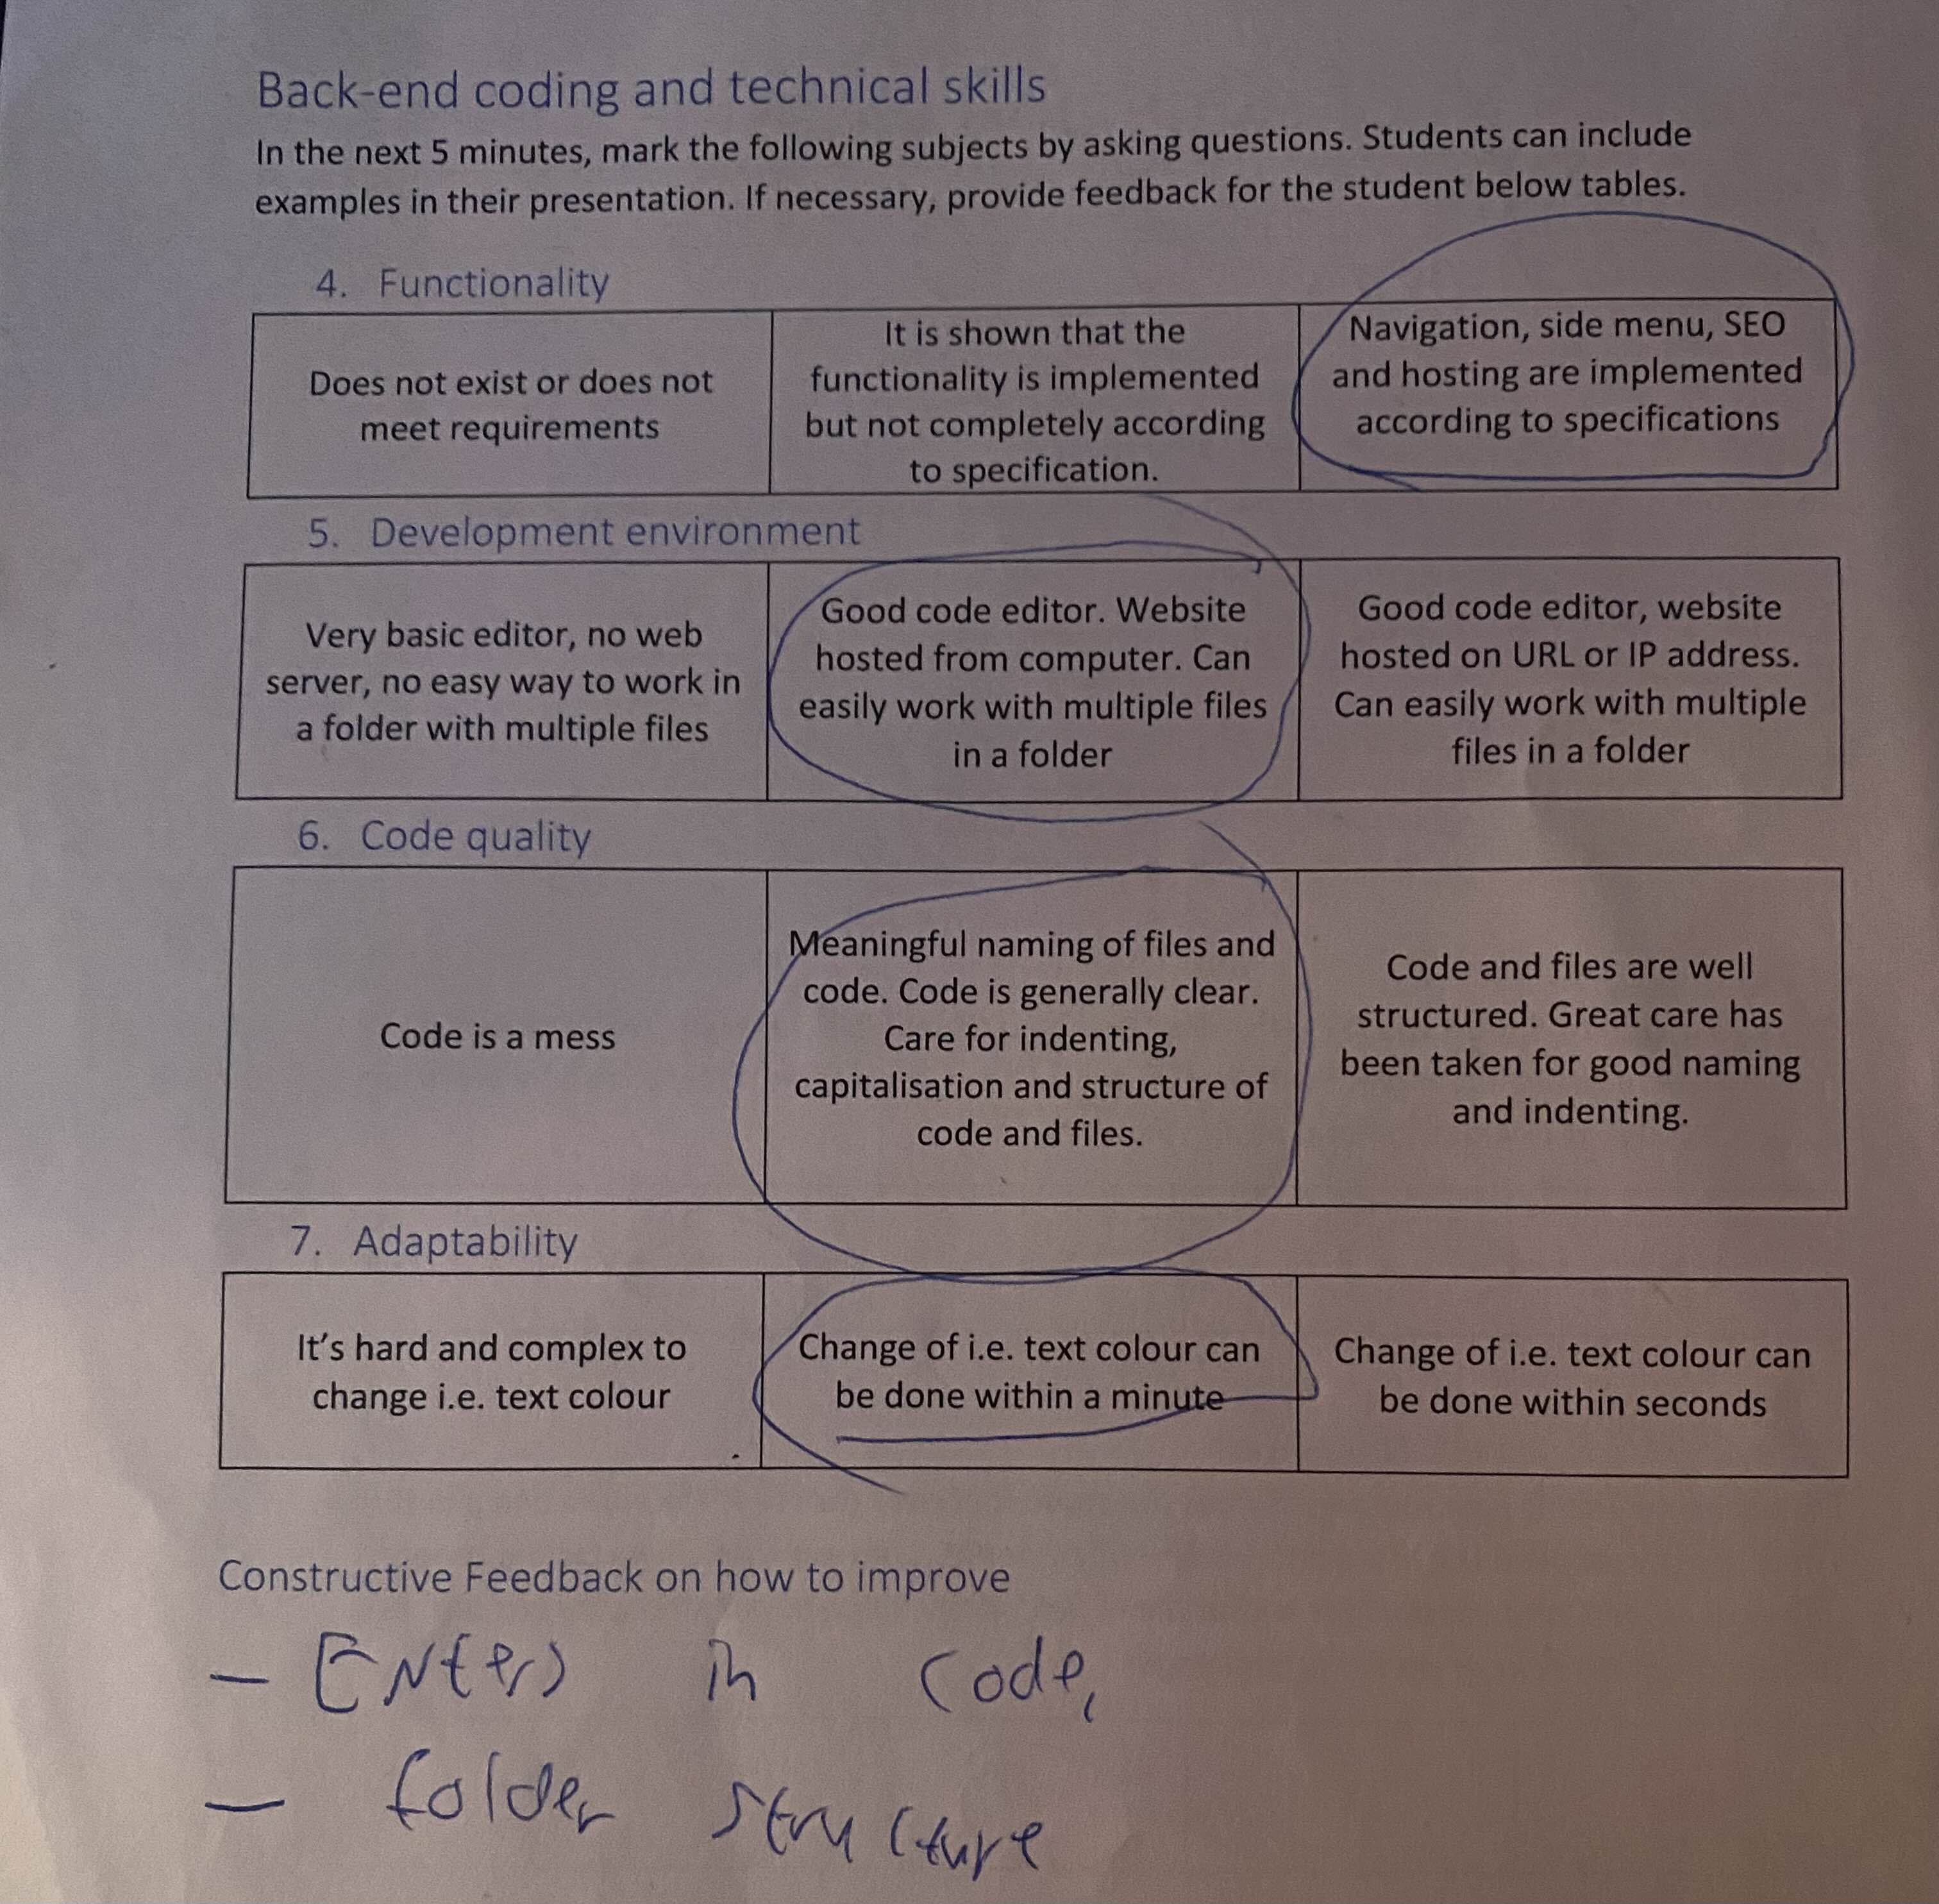 Back-end coding and technical skills
In the next 5 minutes, mark the following subjects by asking questions. Students can include
examples in their presentation. If necessary, provide feedback for the student below tables.
4. Functionality
Does not exist or does not
meet requirements
It is shown that the
functionality is implemented
but not completely according
to specification.
Navigation, side menu, SEO
and hosting are implemented
according to specifications
5. Development environment
Very basic editor, no web
server, no easy way to work in
a folder with multiple files
Good code editor. Website
hosted from computer. Can
easily work with multiple files
in a folder
Good code editor, website
hosted on URL or IP address.
Can easily work with multiple
files in a folder
6. Code quality
Code is a mess
Meaningful naming of files and
code. Code is generally clear.
Care for indenting,
capitalisation and structure of
code and files.
Code and files are well
structured. Great care has
been taken for good naming
and indenting.
7. Adaptability
It's hard and complex to
change i.e. text colour
Change of i.e. text colour can
be done within a minute
Change of i.e. text colour can
be done within seconds
Constructive Feedback on how to improve
- Enters in code,
- folder structure